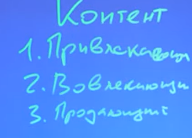 Контент
1. Привлекающий
2. Вовлекающий
3. Продающий